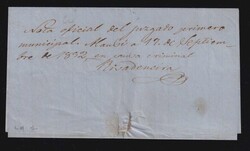 Nota oficial del juzgado primero
municipal. Manila 19 de Septiem-
bre de 1892, en causa criminal